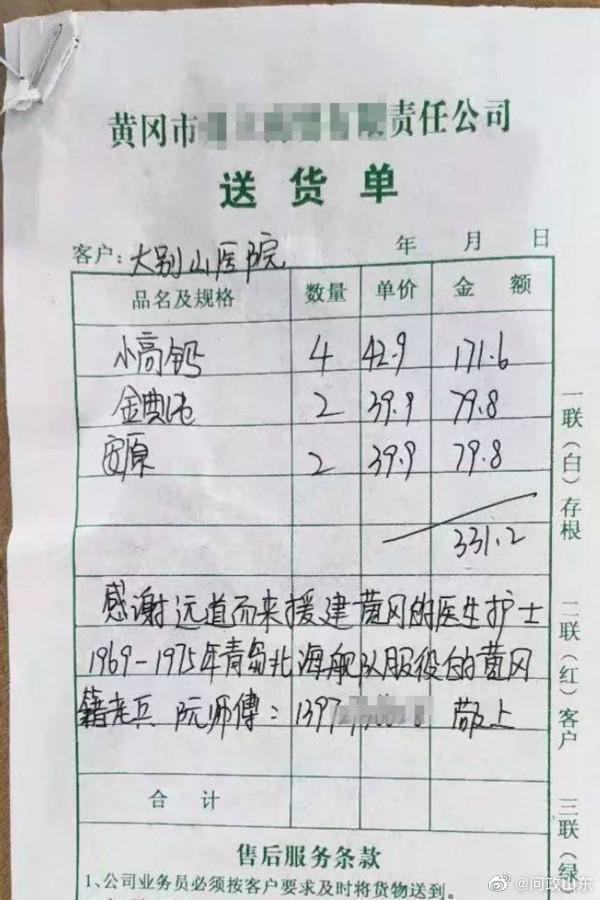 黄冈市 责任公司
送货单
客户：大别山医院 年 月 日
品名及规格 数量 单价 金额
小高钙 4 42.9 171.6
金典纯 2 39.9 79.8
安原 2 39.9 79.8
331.2
感谢远道而来援建黄冈的医生护士
1969-1975年青岛北海舰队服役的黄冈
籍老兵 阮师傅：1397 敬上
合计
售后服务条款
1、公司业务员必须按客户要求及时将货物送到。
一联（白）存根 二联（红）客户 三联（绿）
@问政山东